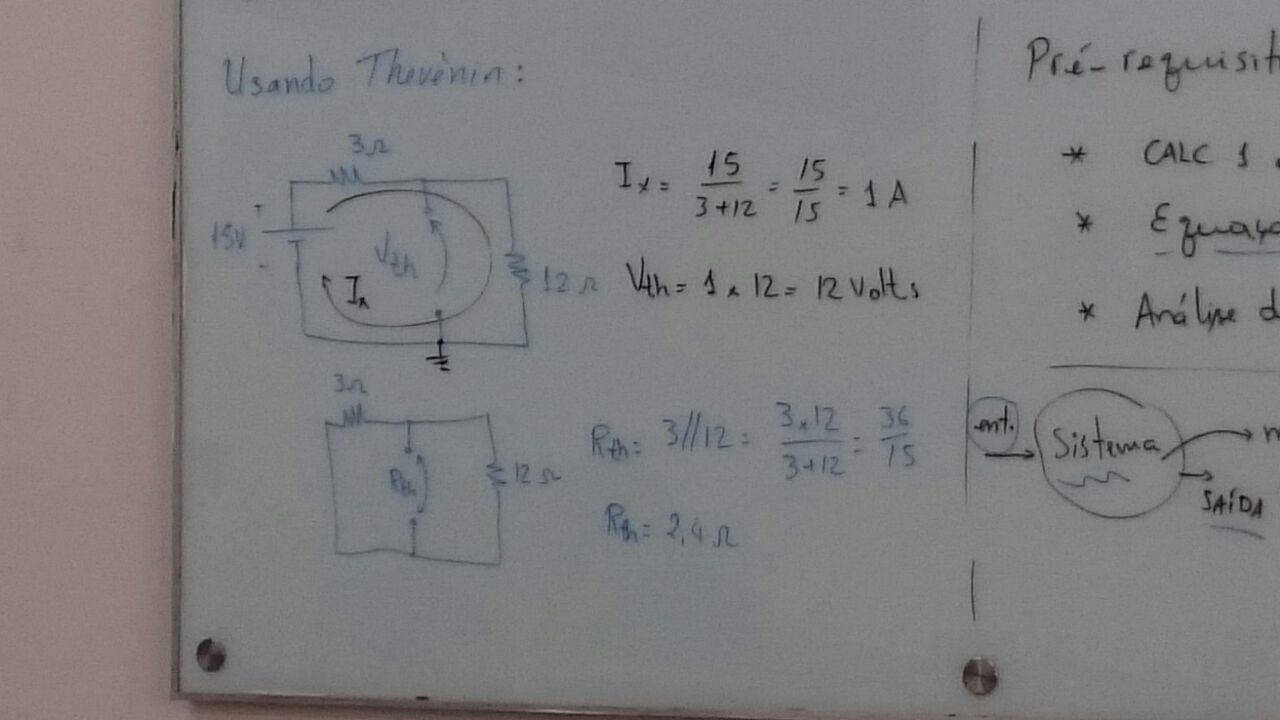 Usando Thevènin:
3Ω
15V
+
-
Vth
Ix
12 Ω
Ix = 15/(3+12) = 15/15 = 1 A
Vth = 1 x 12 = 12 Volts
3Ω
Rth
12 Ω
Rth = 3//12 = (3x12)/(3+12) = 36/15
Rth = 2,4 Ω
Pré-requisit
* CALC 1
* Equaç
* Análise d
ent.
Sistema
SAÍDA